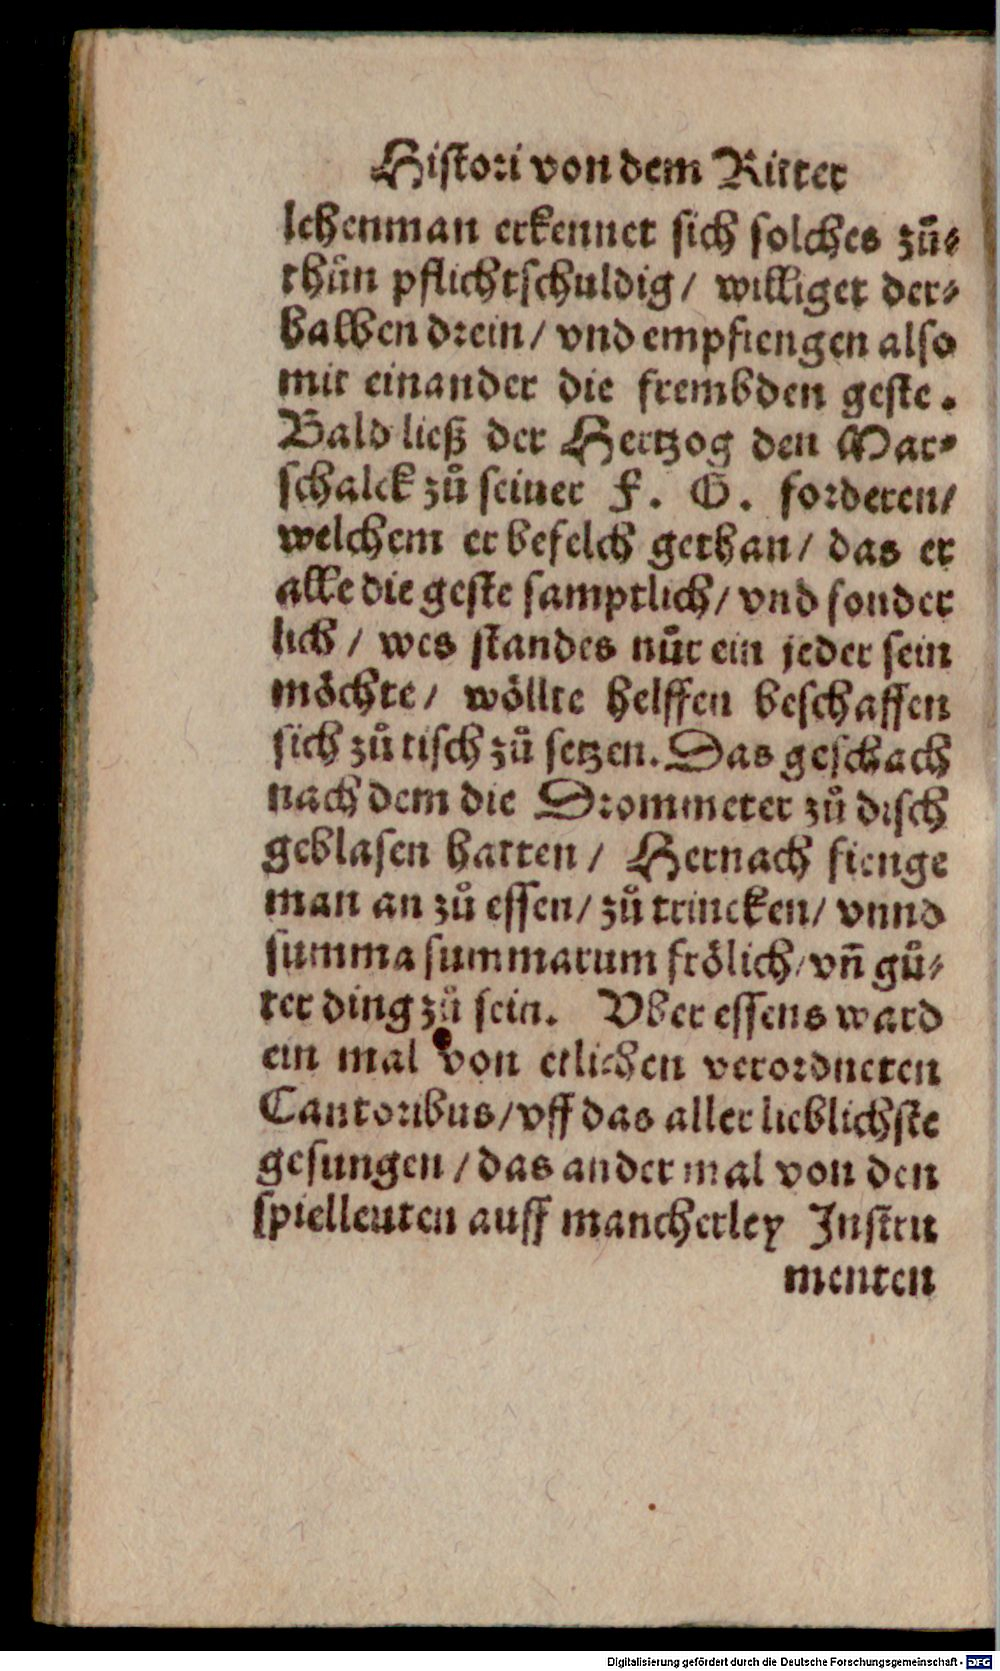 Histori von dem Ritter
lehenman erkennet sich solches zů⸗
thůn pflichtschuldig/ williget der⸗
halben drein/ vnd empfiengen also
mit einander die frembden geste.
Bald ließ der Hertzog den Mar⸗
schalck zů seiner F. G. forderen/
welchem er befelch gethan/ das er
alle die geste samptlich/ vnd sonder
lich/ wes standes nůr ein jeder sein
möchte/ wöllte helffen beschaffen
sich zů tisch zů setzen. Das geschach
nach dem die Drommeter zů disch
geblasen hatten/ Hernach fienge
man an zů essen/ zů trincken/ vnnd
summa summarum frölich/ vñ gů⸗
ter ding zů sein. Vber essens ward
ein mal von etlichen verordneten
Cantoribus/ vff das aller lieblichste
gesungen/ das ander mal von den
spielleuten auff mancherley Instru
menten
Digitalisierung gefördert durch die Deutsche Forschungsgemeinschaft - DFG